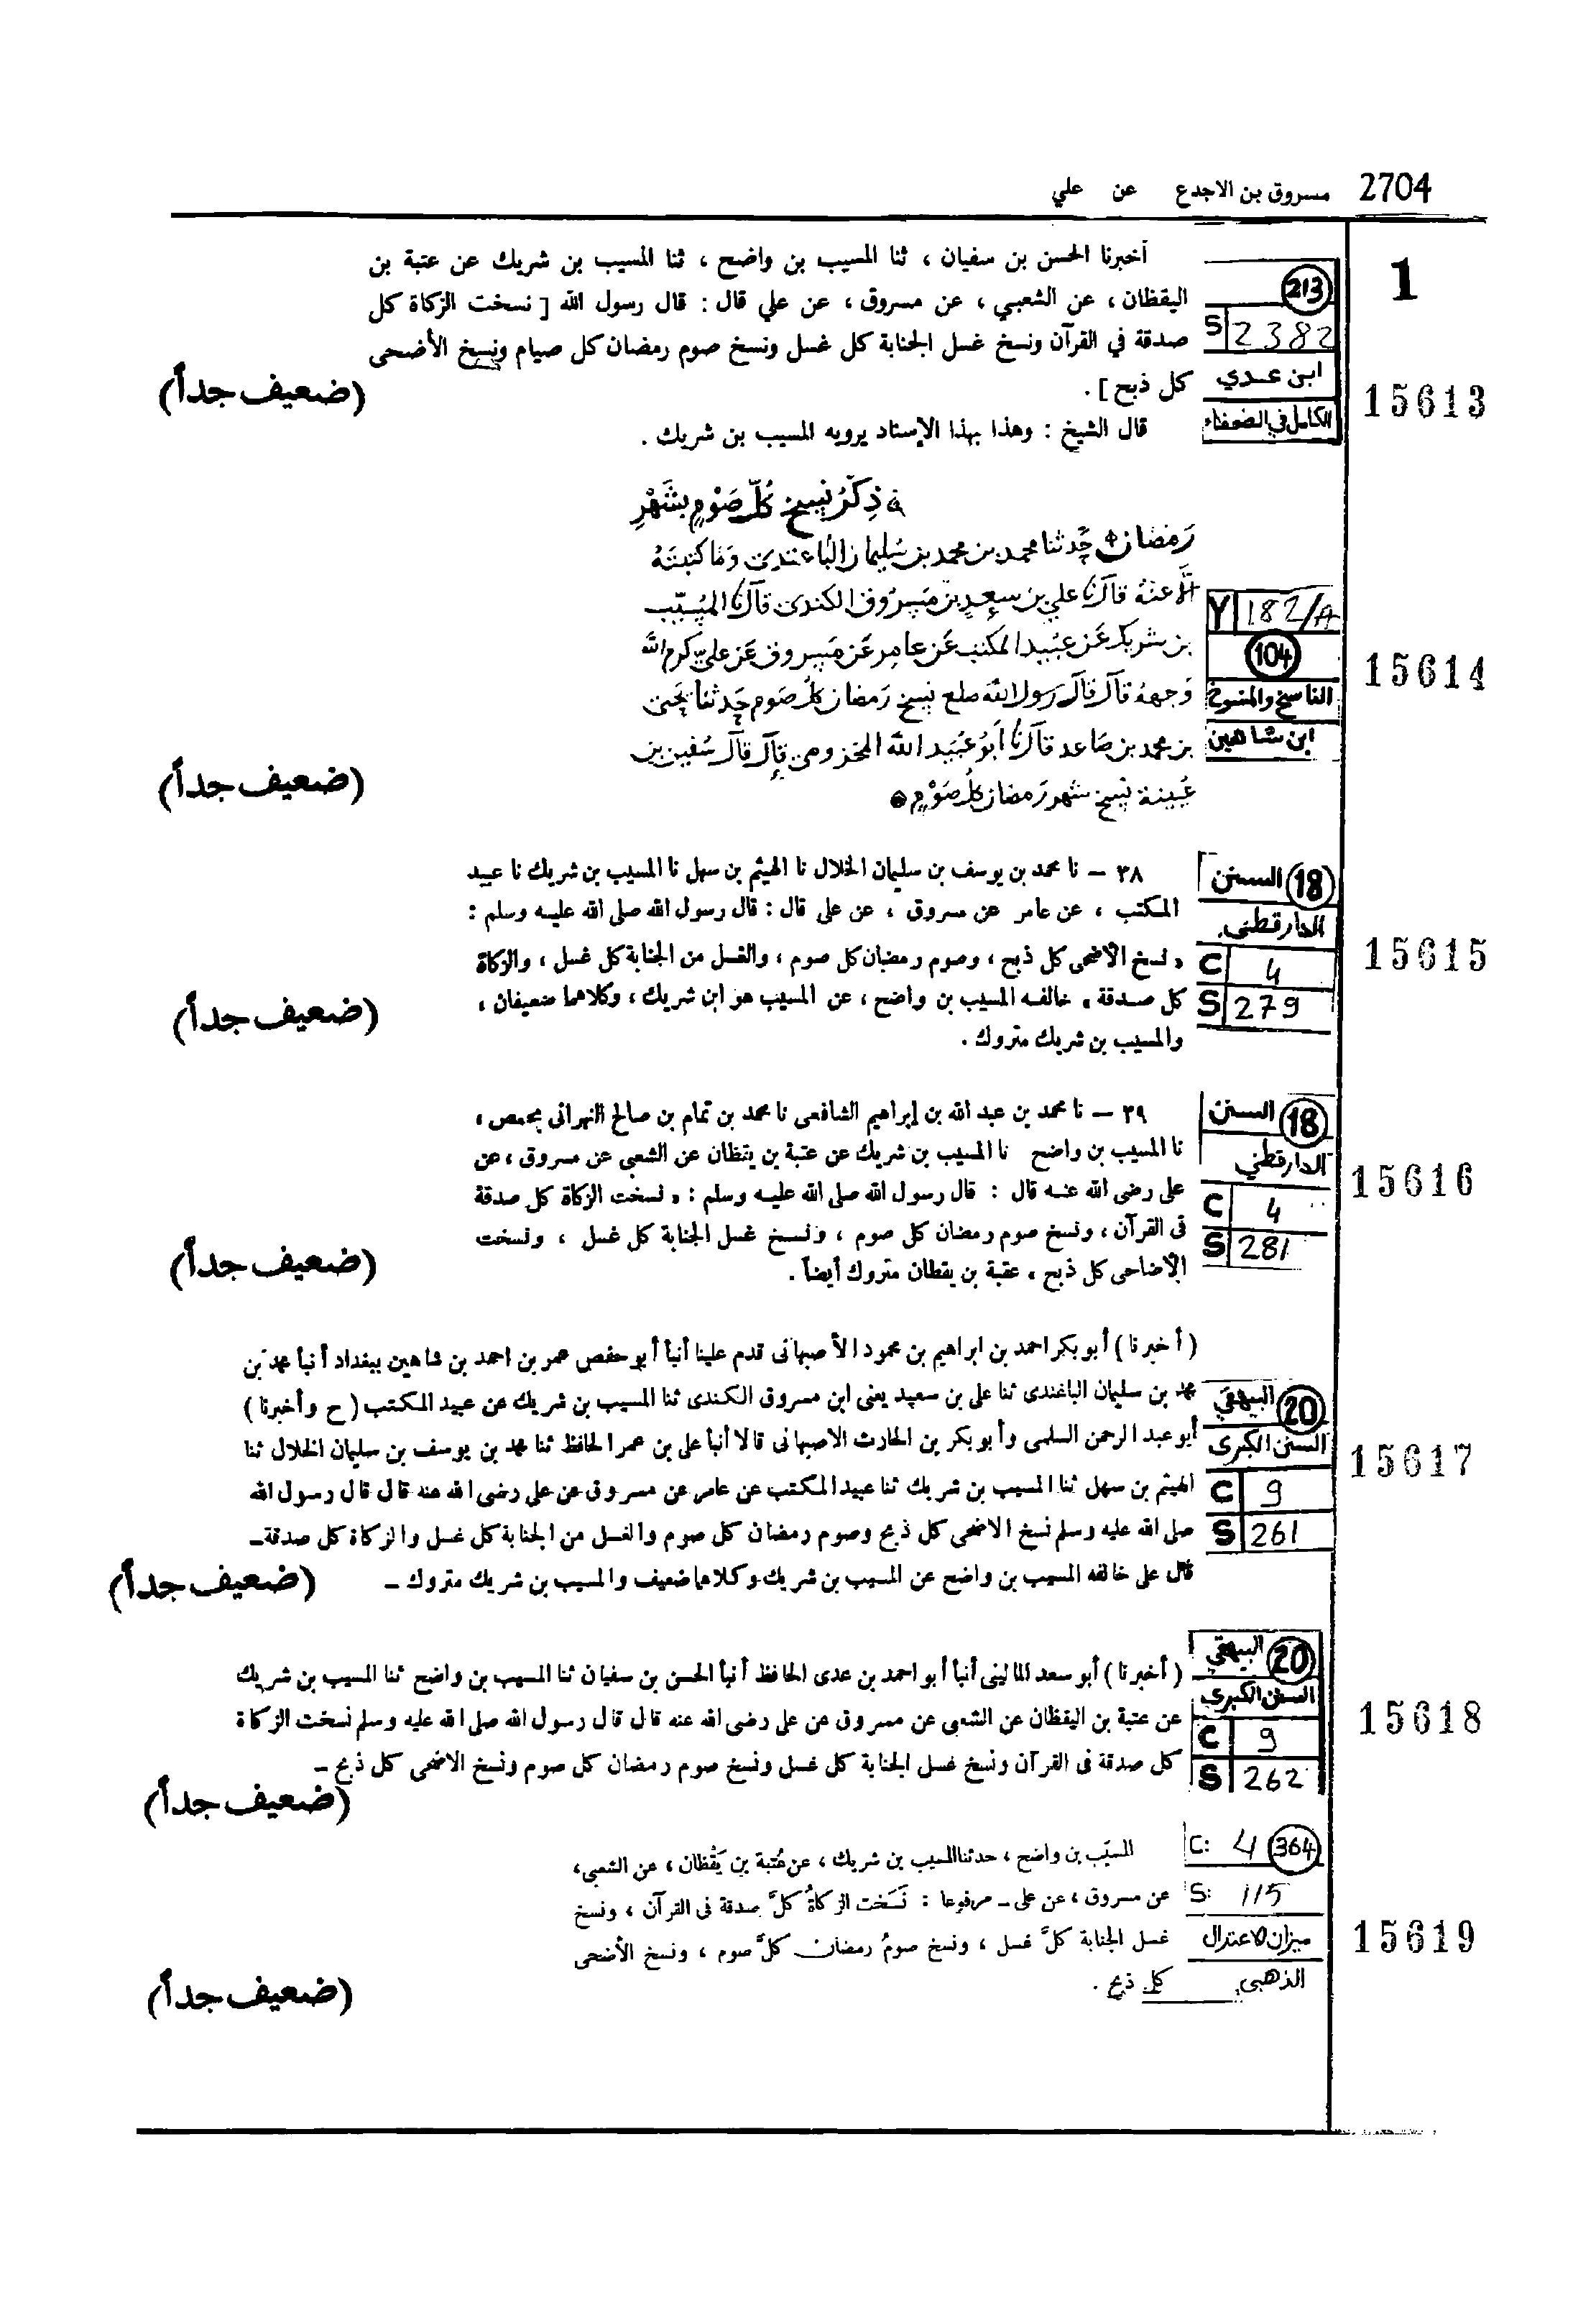 2704 مسروق بن الاجدع عن علي
1
أخبرنا الحسن بن سفيان ، ثنا المسيب بن واضح ، ثنا المسيب بن شريك عن عتبة بن
اليقظان ، عن الشعبي ، عن مسروق ، عن علي قال : قال رسول الله [ نسخت الزكاة كل
صدقة في القرآن ونسخ غسل الجنابة كل غسل ونسخ صوم رمضان كل صيام ونسخ الأضحى
كل ذبح ] .
قال الشيخ : وهذا بهذا الإسناد يرويه المسيب بن شريك .
213
S 2382
ابن عدي
الكامل في الضعفاء
15613
(ضعيف جداً)
ذِكْرُ نسخ كُلّ صَوْمٍ بشَهْرِ
رَمضان حَدثنا محمد بن محمد بن سُليمان الباغندي وَمَا كتبتهُ
إلّا عنهُ قال نا علي بن سعيد بن مَسروق الكندي قال نا المُسيّب
بن شريك عَن عبُيد المكتب عَن عامِر عَن مَسروق عَن عليّ كرم الله
وَجههُ قال قال رسول الله صلع نسخ رَمضان كل صَوم حَدثنا يحيى
بن محمد بن صَاعد قال نا أبو عبيد الله المخزومي قال قال سُفين بن
عُيينة نسخ شهر رَمضان كل صَوْمٍ
Y 182/A
104
الناسخ والمنسوخ
ابن شاهين
15614
(ضعيف جداً)
٣٨ – نا محمد بن يوسف بن سليمان الخلال نا الهيثم بن سهل نا المسيب بن شريك نا عبيد
المكتب ، عن عامر عن مسروق ، عن على قال : قال رسول الله صلى الله عليه وسلم :
« نسخ الأضحى كل ذبح ، وصوم رمضان كل صوم ، والغسل من الجنابة كل غسل ، والزكاة
كل صدقة » خالفه المسيب بن واضح ، عن المسيب هو ابن شريك ، وكلاهما ضعيفان ،
والمسيب بن شريك متروك .
18 السنن
الدارقطني
C 4
S 279
15615
(ضعيف جداً)
٣٩ – نا محمد بن عبد الله بن إبراهيم الشافعى نا محمد بن تمام بن صالح النهرانى بحمص ،
نا المسيب بن واضح نا المسيب بن شريك عن عتبة بن يقظان عن الشعبى عن مسروق ، عن
على رضى الله عنه قال : قال رسول الله صلى الله عليه وسلم : « نسخت الزكاة كل صدقة
فى القرآن ، ونسخ صوم رمضان كل صوم ، ونسخ غسل الجنابة كل غسل ، ونسخت
الأضاحى كل ذبح » عقبة بن يقطان متروك أيضاً .
18 السنن
الدارقطني
C 4
S 281
15616
(ضعيف جداً)
( أخبرنا ) أبو بكر احمد بن ابراهيم بن محمود الأصبهانى قدم علينا أنبأ أبو حفص عمر بن احمد بن شاهين ببغداد أنبأ محمد بن
محمد بن سليمان الباغندى ثنا على بن سعيد يعنى ابن مسروق الكندى ثنا المسيب بن شريك عن عبيد المكتب ( ح وأخبرنا )
أبو عبد الرحمن السلمى وأبو بكر بن الحارث الاصبهانى قالا أنبأ على بن عمر الحافظ ثنا محمد بن يوسف بن سليمان الخلال ثنا
الهيثم بن سهل ثنا المسيب بن شريك ثنا عبيد المكتب عن عامر عن مسروق عن على رضى الله عنه قال قال رسول الله
صلى الله عليه وسلم نسخ الاضحى كل ذبح وصوم رمضان كل صوم والغسل من الجنابة كل غسل والزكاة كل صدقة –
قال على خالفه المسيب بن واضح عن المسيب بن شريك وكلاهما ضعيف والمسيب بن شريك متروك –
20 البيهقي
السنن الكبرى
C 9
S 261
15617
(ضعيف جداً)
( أخبرنا ) أبو سعد المالينى أنبأ أبو احمد بن عدى الحافظ أنبأ الحسن بن سفيان ثنا المسيب بن واضح ثنا المسيب بن شريك
عن عتبة بن اليقظان عن الشعبى عن مسروق عن على رضى الله عنه قال قال رسول الله صلى الله عليه وسلم نسخت الزكاة
كل صدقة فى القرآن ونسخ غسل الجنابة كل غسل ونسخ صوم رمضان كل صوم ونسخ الاضحى كل ذبح –
20 البيهقي
السنن الكبرى
C 9
S 262
15618
(ضعيف جداً)
المسيّب بن واضح ، حدثنا المسيب بن شريك ، عن عُتبة بن يَقْظان ، عن الشعبى ،
عن مسروق ، عن على – مرفوعا : نَسَخت الزكاةُ كلَّ صدقة فى القرآن ، ونسخ
غسل الجنابة كلَّ غسل ، ونسخ صومُ رمضان كلَّ صوم ، ونسخ الأضحى
كل ذبح .
364 C: 4
S: 115
ميزان الاعتدال
الذهبي
15619
(ضعيف جداً)